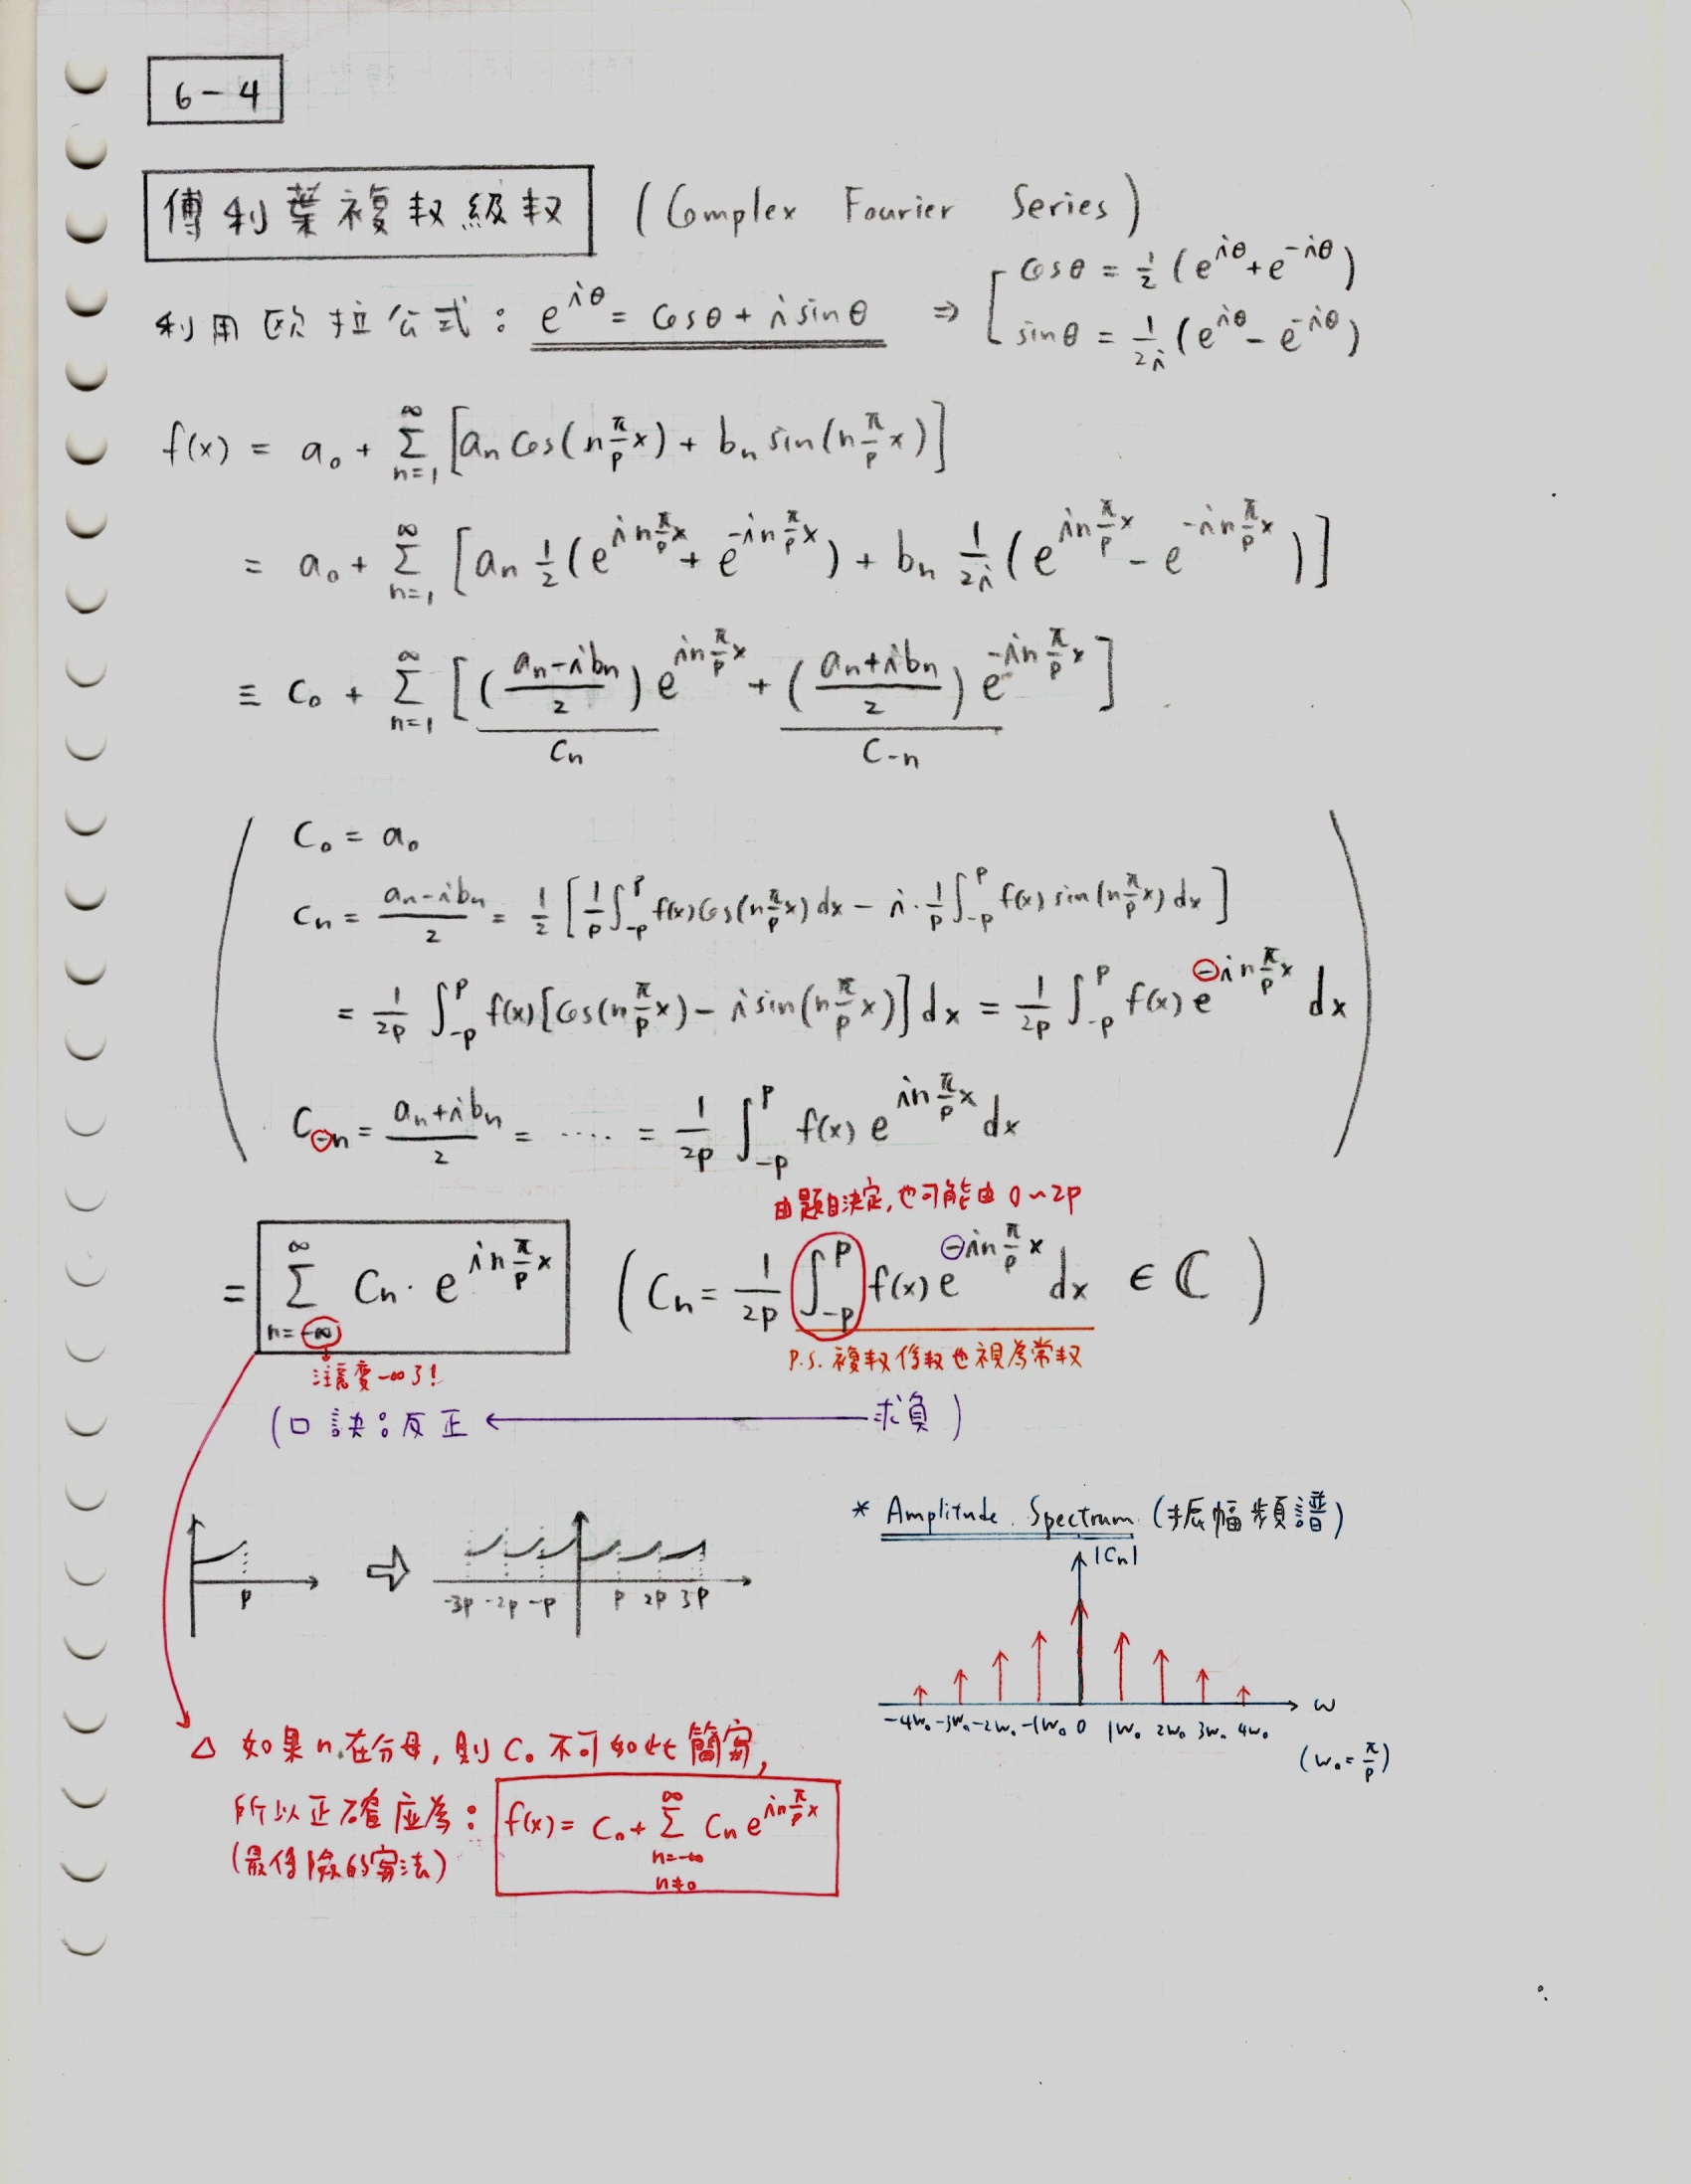 6-4
傅利葉複数級数 (Complex Fourier Series)
利用欧拉公式: e^{iθ} = cosθ + i sinθ ⇒ [ cosθ = 1/2 (e^{iθ} + e^{-iθ})
sinθ = 1/2i (e^{iθ} - e^{-iθ})
f(x) = a₀ + Σ_{n=1}^{∞} [aₙ cos(n π/p x) + bₙ sin(n π/p x)]
= a₀ + Σ_{n=1}^{∞} [aₙ 1/2 (e^{in π/p x} + e^{-in π/p x}) + bₙ 1/2i (e^{in π/p x} - e^{-in π/p x})]
≡ C₀ + Σ_{n=1}^{∞} [((aₙ - ibₙ)/2) e^{in π/p x} + ((aₙ + ibₙ)/2) e^{-in π/p x}]
Cₙ C₋ₙ
C₀ = a₀
Cₙ = (aₙ - ibₙ)/2 = 1/2 [1/p ∫_{-p}^{p} f(x) cos(n π/p x) dx - i · 1/p ∫_{-p}^{p} f(x) sin(n π/p x) dx]
= 1/2p ∫_{-p}^{p} f(x) [cos(n π/p x) - i sin(n π/p x)] dx = 1/2p ∫_{-p}^{p} f(x) e^{-in π/p x} dx
C₋ₙ = (aₙ + ibₙ)/2 = .... = 1/2p ∫_{-p}^{p} f(x) e^{in π/p x} dx
由題目決定,也可能由 0~2p
= Σ_{n=-∞}^{∞} Cₙ · e^{in π/p x} (Cₙ = 1/2p ∫_{-p}^{p} f(x) e^{-in π/p x} dx ∈ ℂ)
注意變-∞了!
P.S. 複数係数也視為常数
(口訣:反正 ← 求負)
p ⇒ -3p -2p -p p 2p 3p
* Amplitude Spectrum (振幅頻譜)
|Cₙ|
-4w₀ -3w₀ -2w₀ -1w₀ 0 1w₀ 2w₀ 3w₀ 4w₀ ω
(w₀ = π/p)
△ 如果n在分母,則C₀不可如此簡寫,
所以正確应為: f(x) = C₀ + Σ_{n=-∞, n≠0}^{∞} Cₙ e^{in π/p x}
(最保險的寫法)